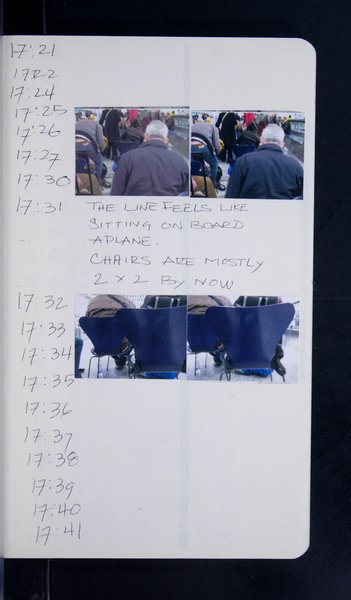 17:21
17:22
17:24
17:25
17:26
17:27
17:30
17:31 THE LINE FEELS LIKE
SITTING ON BOARD
APLANE.
CHAIRS ARE MOSTLY
2 x 2 BY NOW
17:32
17:33
17:34
17:35
17:36
17:37
17:38
17:39
17:40
17:41